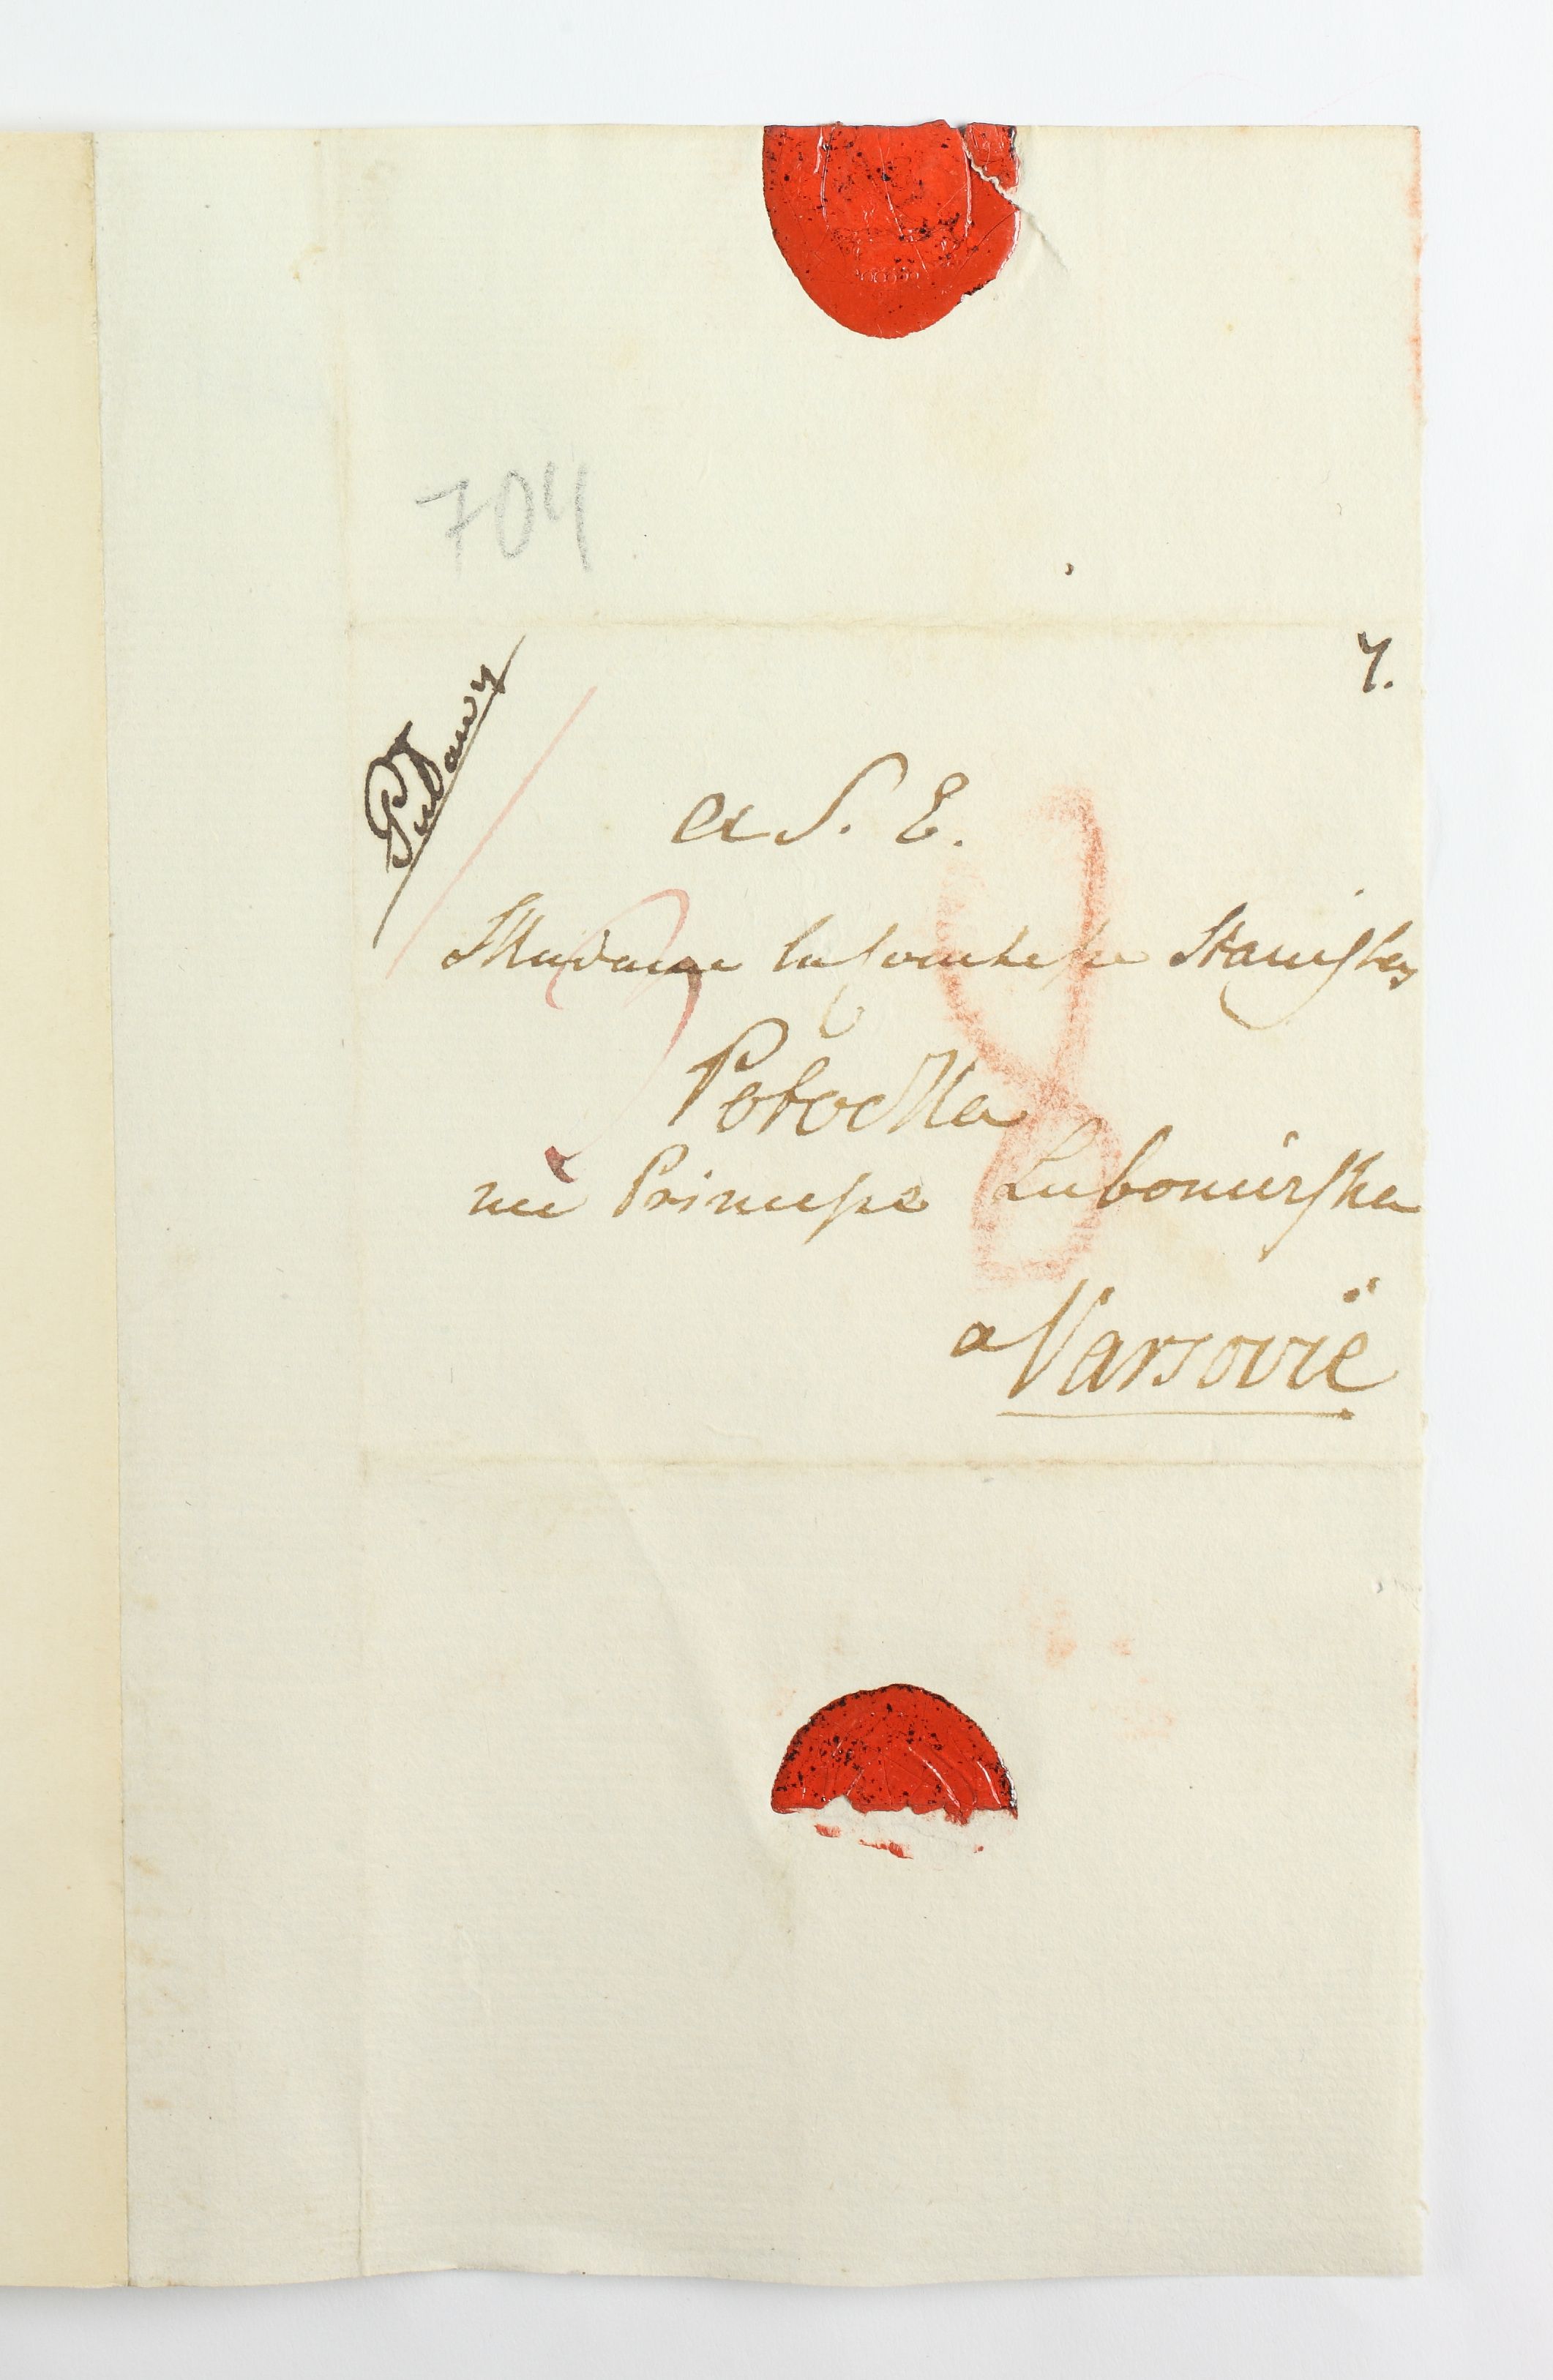 704
7.
Pulawy
a S. E.
Madame la Comtesse Stanislas
Potocka
née Princesse Lubomirska
a Varsovie